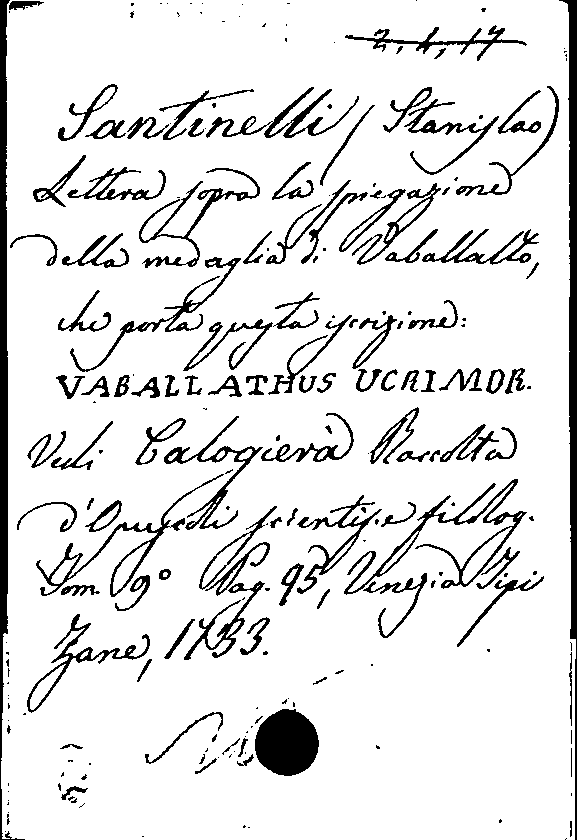 2, 4, 17
Santinelli (Stanislao)
Lettera sopra la spiegazione
della medaglia di Vaballatto,
che porta questa iscrizione:
VABALLATHUS UCRIMDR.
Vedi Calogierà Raccolta
d'Opuscoli scientif. e filolog.
Tom. 9° Pag. 95, Venezia Tipi
Zane, 1733.